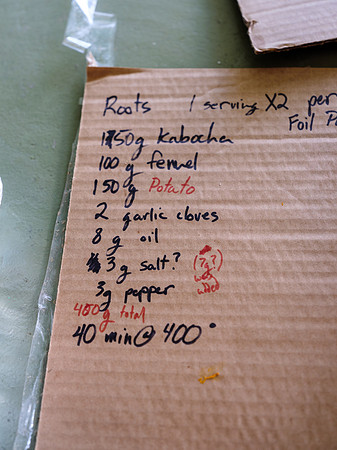 Roots 1 serving X2 per
Foil
150g Kabocha
100 g fennel
150 g Potato
2 garlic cloves
8 g oil
3g salt? (7g? was added)
3g pepper
450g total
40 min @ 400°